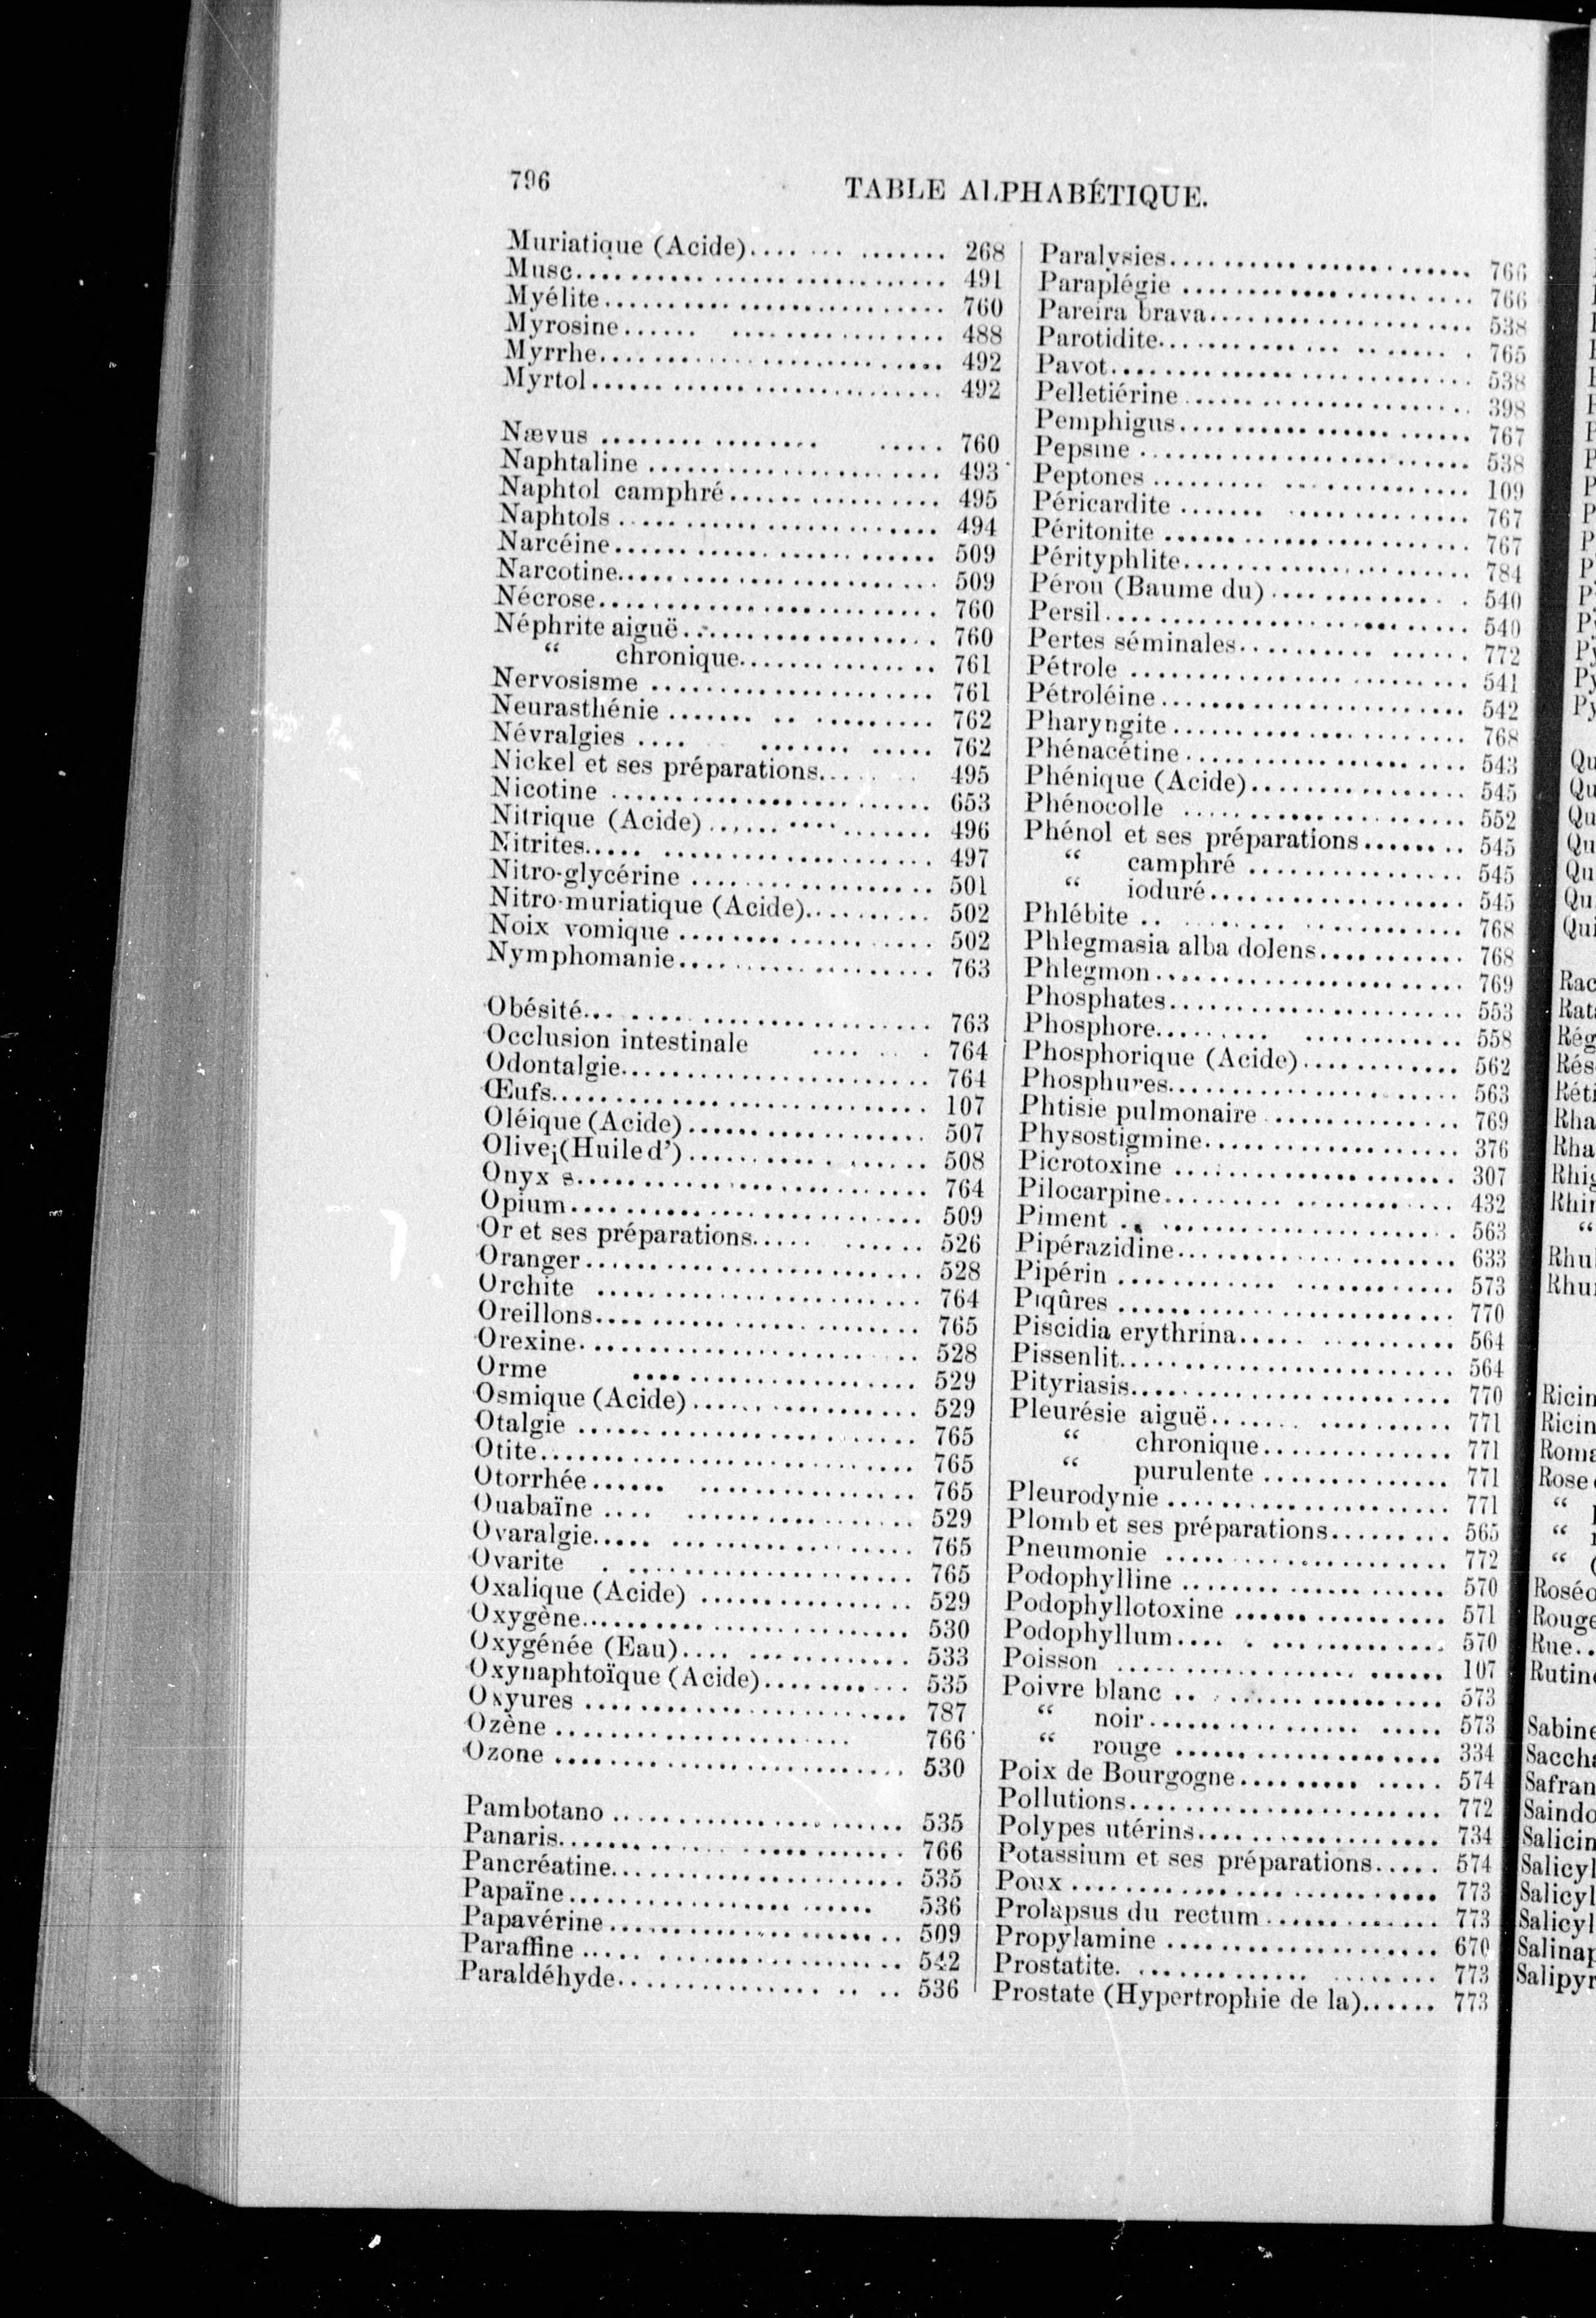 796
TABLE ALPHABÉTIQUE.
Muriatique (Acide).... ... ....... 268
Musc................................ 491
Myélite............................. 760
Myrosine...... ................ 488
Myrrhe.............................. 492
Myrtol.............................. 492
Nævus ................ ..... 760
Naphtaline ....................... 493
Naphtol camphré................ 495
Naphtols .......................... 494
Narcéine........................... 509
Narcotine.......................... 509
Nécrose............................ 760
Néphrite aiguë................... 760
“ chronique............... 761
Nervosisme ...................... 761
Neurasthénie ....... .. ......... 762
Névralgies .... ....... ..... 762
Nickel et ses préparations....... 495
Nicotine ......................... 653
Nitrique (Acide).................. 496
Nitrites..... ..................... 497
Nitro-glycérine ................... 501
Nitro-muriatique (Acide).......... 502
Noix vomique .................... 502
Nymphomanie.................... 763
Obésité............................ 763
Occlusion intestinale .... . . 764
Odontalgie........................ 764
Œufs.............................. 107
Oléique (Acide)................... 507
Olive¡(Huile d’).................. 508
Onyx s............................ 764
Opium............................ 509
Or et ses préparations..... ...... 526
Oranger.......................... 528
Orchite .......................... 764
Oreillons......................... 765
Orexine.......................... 528
Orme ..................... 529
Osmique (Acide).................. 529
Otalgie .......................... 765
Otite............................. 765
Otorrhée...... ................ 765
Ouabaïne .... ................. 529
Ovaralgie..... ................. 765
Ovarite . ...................... 765
Oxalique (Acide) ................ 529
Oxygène......................... 530
Oxygénée (Eau).... ............ 533
Oxynaphtoïque (Acide)........... 535
Oxyures ......................... 787
Ozène ...................... 766
Ozone ........................... 530
Pambotano ....................... 535
Panaris........................... 766
Pancréatine....................... 535
Papaïne....................... 536
Papavérine....................... 509
Paraffine ..... ................... 542
Paraldéhyde............... .. .. 536
Paralysies......................... 766
Paraplégie ........................ 766
Pareira brava..................... 538
Parotidite.............. ....... . 765
Pavot............................. 538
Pelletiérine ....................... 398
Pemphigus........................ 767
Pepsine .......................... 538
Peptones ......... ................ 109
Péricardite ....... .............. 767
Péritonite ........................ 767
Pérityphlite....................... 784
Pérou (Baume du).............. . 540
Persil............................. 540
Pertes séminales.......... ...... 772
Pétrole ........................... 541
Pétroléine......................... 542
Pharyngite........................ 768
Phénacétine....................... 543
Phénique (Acide)................. 545
Phénocolle ....................... 552
Phénol et ses préparations........ 545
“ camphré ................. 545
“ ioduré.................... 545
Phlébite .. ...................... 768
Phlegmasia alba dolens........... 768
Phlegmon......................... 769
Phosphates....................... 553
Phosphore......... ............ 558
Phosphorique (Acide)............. 562
Phosphures....................... 563
Phtisie pulmonaire ............... 769
Physostigmine.................... 376
Picrotoxine ....................... 307
Pilocarpine....................... 432
Piment .. ....................... 563
Pipérazidine...................... 633
Pipérin ............ ............. 573
Piqûres .......................... 770
Piscidia erythrina..... .......... 564
Pissenlit.......................... 564
Pityriasis......................... 770
Pleurésie aiguë....... ........... 771
“ chronique............... 771
“ purulente ............... 771
Pleurodynie ...................... 771
Plomb et ses préparations......... 565
Pneumonie ....................... 772
Podophylline ..................... 570
Podophyllotoxine ................. 571
Podophyllum.... . .............. 570
Poisson .................... ...... 107
Poivre blanc .. .................. 573
“ noir................ ..... 573
“ rouge .................... 334
Poix de Bourgogne......... ..... 574
Pollutions........................ 772
Polypes utérins................... 734
Potassium et ses préparations..... 574
Poux ............................. 773
Prolapsus du rectum.............. 773
Propylamine ..................... 670
Prostatite. ............. ........ 773
Prostate (Hypertrophie de la)...... 773
Qu
Qu
Qu
Qu
Qu
Qu
Qui
Rac
Rat
Rég
Rés
Réti
Rha
Rha
Rhig
Rhin
“
Rhu
Rhu
Ricin
Ricin
Roma
Rose
“
“
“ (
Roséo
Rouge
Rue..
Rutin
Sabine
Saccha
Safran
Saindo
Salicin
Salicyl
Salicyl
Salicyl
Salinap
Salipyr